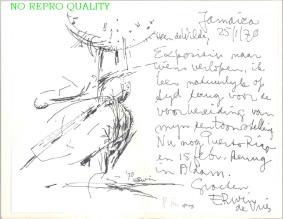 NO REPRO QUALITY
Jamaica
25/1/70
van de Wilde,
Expositie naar
wens verlopen, ik
ben natuurlijk op
tijd terug voor de
voorbereiding van
mijn tentoonstelling
Nu nog Puerto Rico
en 15 febr. terug
in A'dam.
Groeten
Erwin
de Vries
'70 erwin